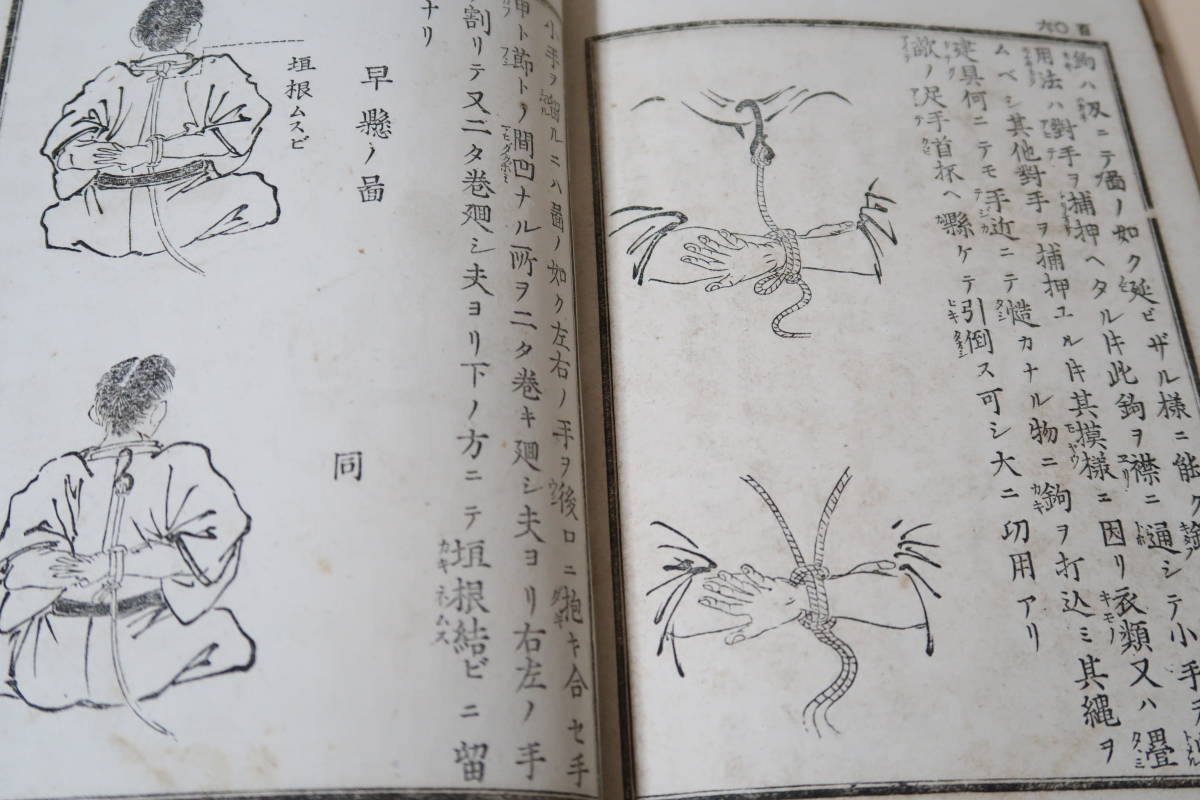 百〇六
鉤ハ
ニテ圖ノ如ク延ビザル様ニ能ク
通シテ小手ヲ
用法ハ對手ヲ捕押ヘタル時此鉤ヲ襟ニ
ムベシ其他對手ヲ捕押エル時其摸様ニ因リ衣類又ハ畳
建具何ニテモ手近ニテ慥カナル物ニ鉤ヲ打込ミ其縄ヲ
敵ノ足手首抔ヘ縣ケテ引倒ス可シ大ニ功用アリ
小手ヲ縛ルニハ圖ノ如ク左右ノ手ヲ後ロニ抱キ合セ手
甲ト節トノ間凹ナル所ヲ二タ巻キ廻シ夫ヨリ右左ノ手
割リテ又二タ巻廻シ夫ヨリ下ノ方ニテ垣根結ビニ留
ナリ
早懸ノ圖
同
垣根ムスビ